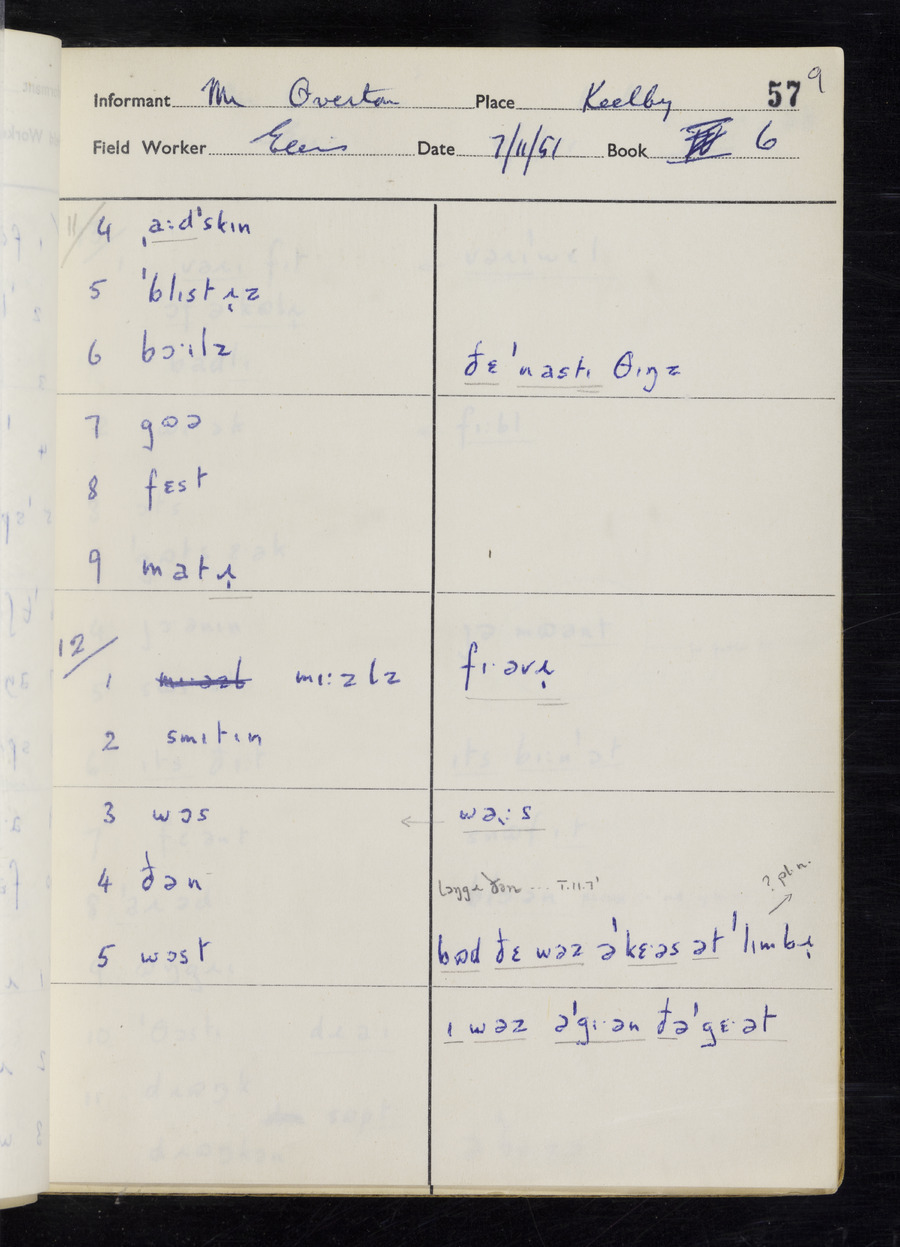 Informant Mr Overton Place Keelby 57 9
Field Worker Ellis Date 7/11/51 Book 6
11/ 4 ˌa:d'skɪn
5 'blɪstɪ̣z
6 bɔ:ɪlz ðɛ 'nastɪ θɪŋz
7 gʊə
8 fɛst
9 matɪ̣
12/
1 mɪ:zlz fɪ·əvɪ̣
2 smɪtɪn
3 wɔs ← wə:s
4 ðən
5 wɔst bʊd ðɛ wəz ə'kɛ·əs ət 'lɪmbɪ̣ ? pl. n.
ɪ wəz ə'gɪ·ən ðə'gɛ·ət